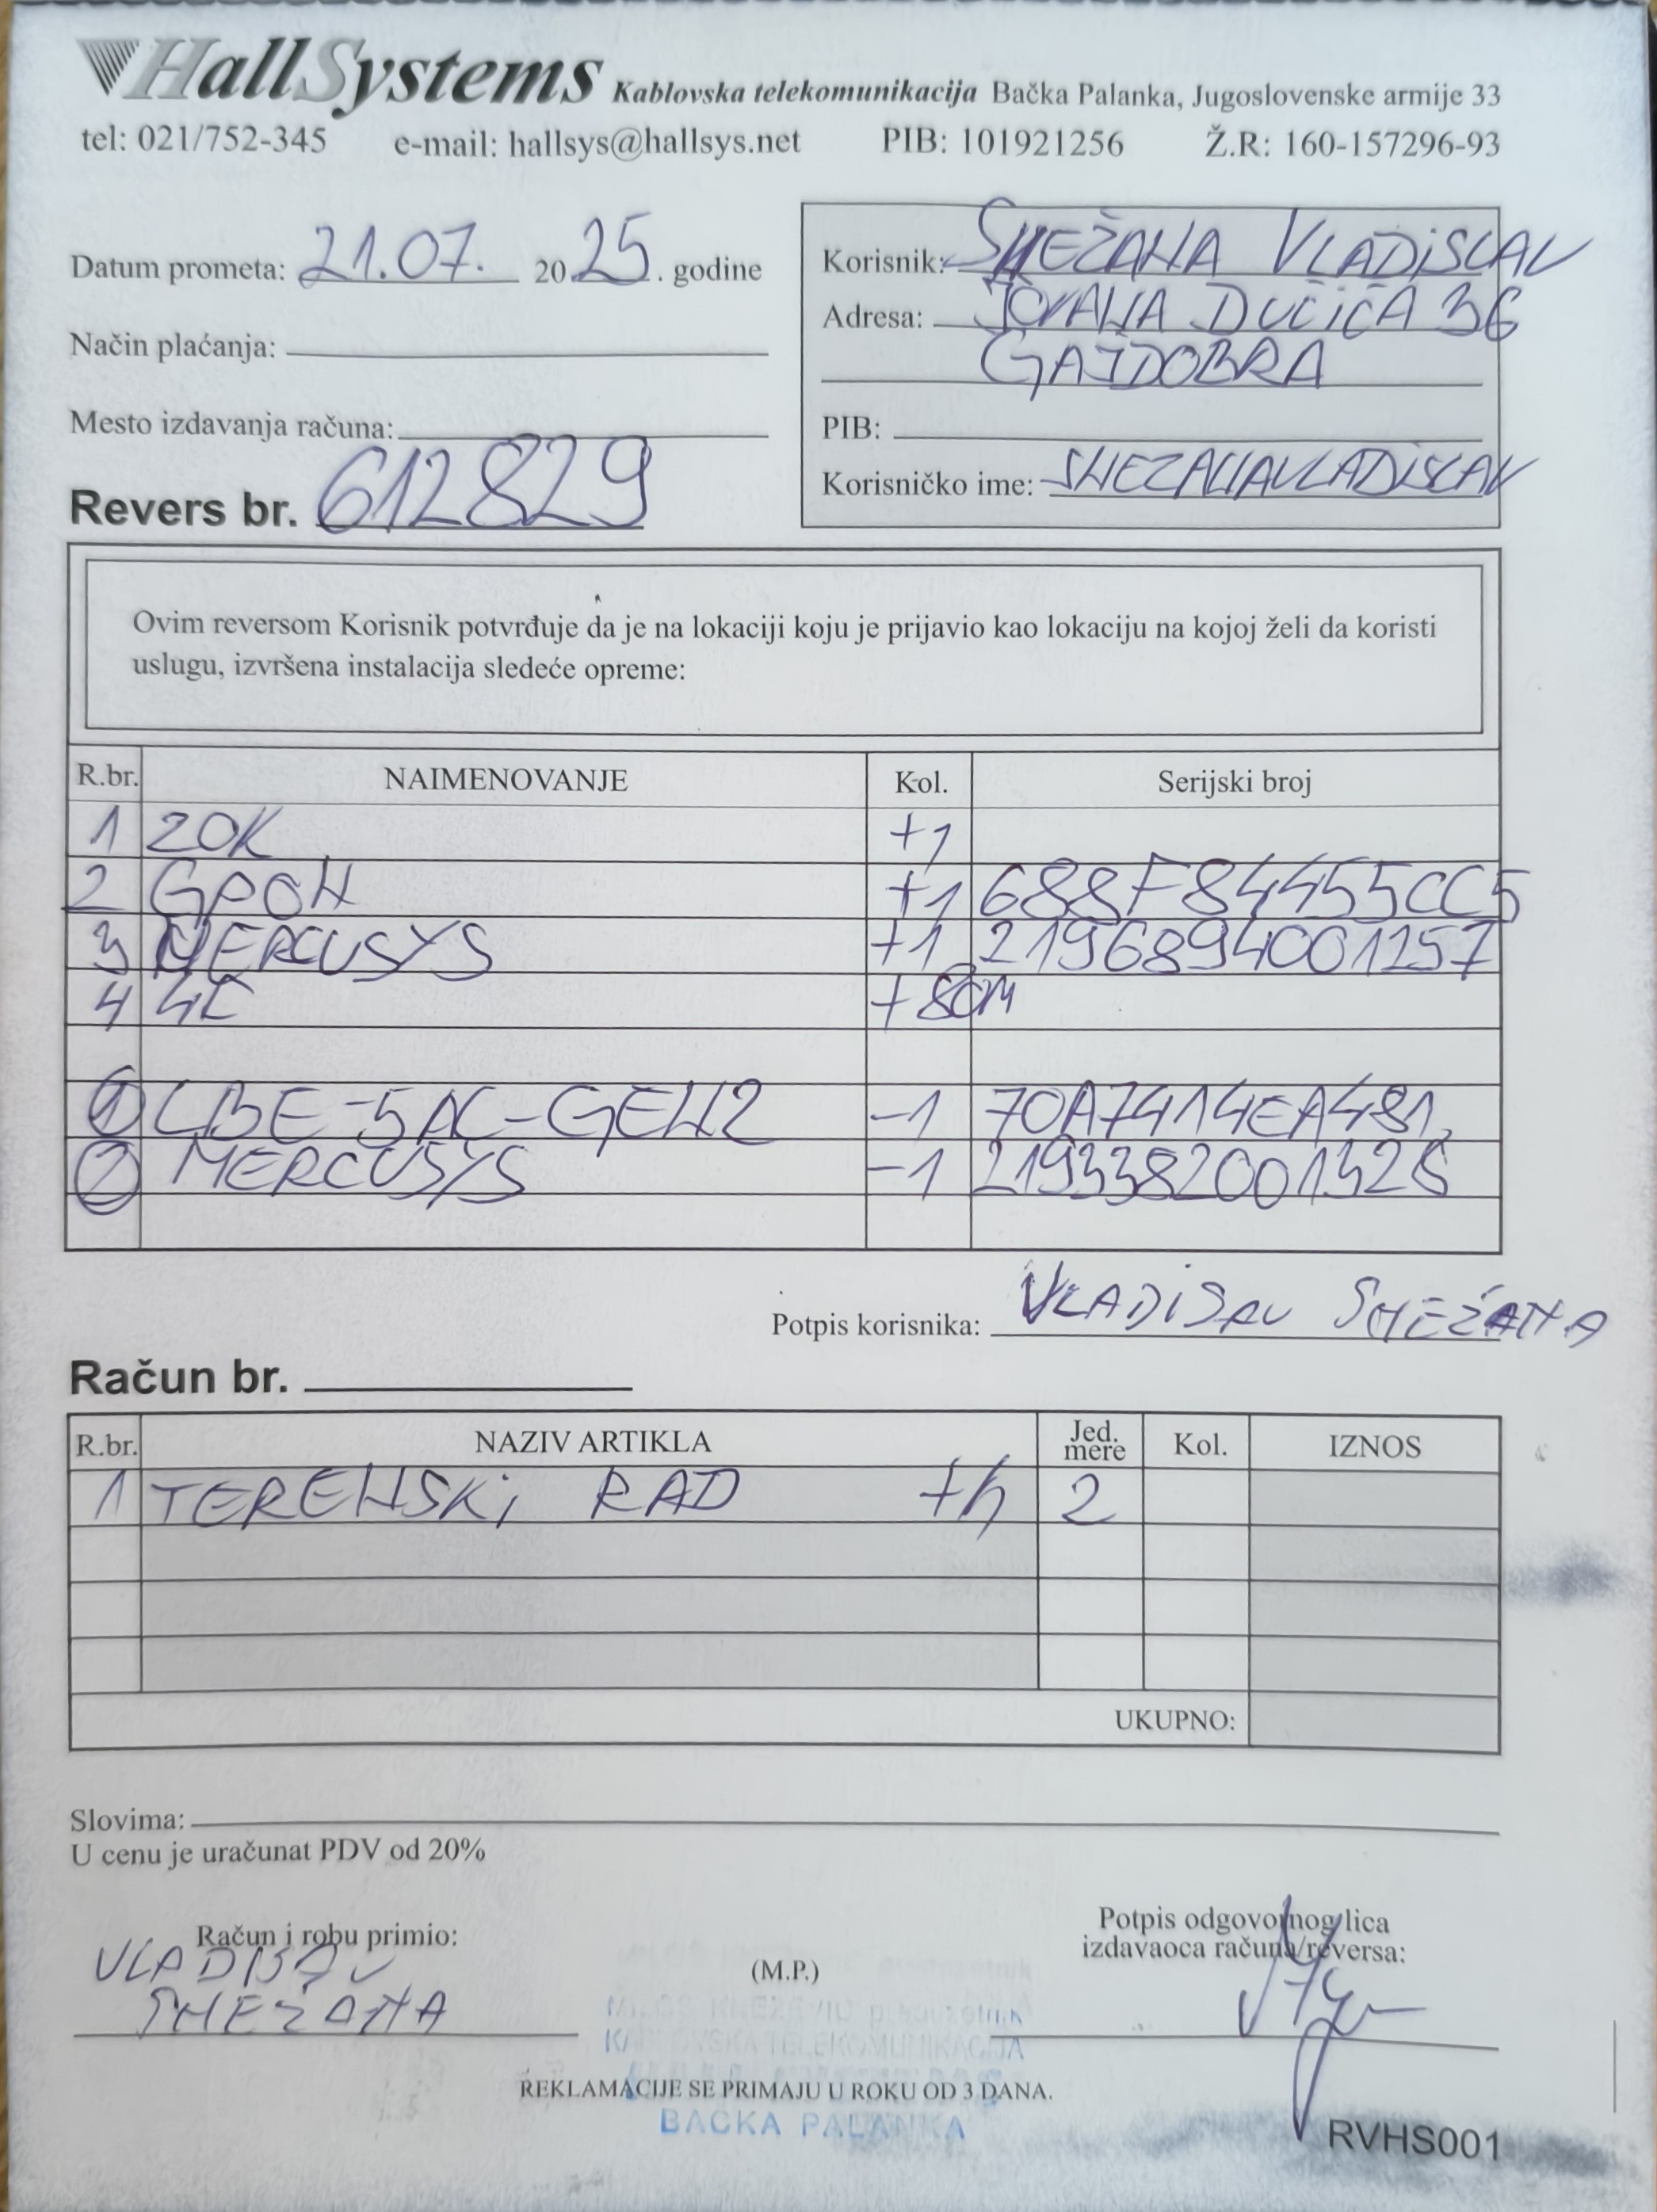 HallSystems Kablovska telekomunikacija Bačka Palanka, Jugoslovenske armije 33
tel: 021/752-345 e-mail: hallsys@hallsys.net PIB: 101921256 Ž.R: 160-157296-93
Datum prometa: 21.07. 2025. godine
Način plaćanja:
Mesto izdavanja računa:
Revers br. 612829
Korisnik: SNEŽANA VLADISLAV
Adresa: JOVANA DUČIĆA 36
GAJDOBRA
PIB:
Korisničko ime: SNEZANAVLADISLAV
Ovim reversom Korisnik potvrđuje da je na lokaciji koju je prijavio kao lokaciju na kojoj želi da koristi
uslugu, izvršena instalacija sledeće opreme:
R.br. NAIMENOVANJE Kol. Serijski broj
1 ZOK +1
2 GPON +1 688F84455CC5
3 MERCUSYS +1 2196894001257
4 +80M
1 LBE-5AC-GEN2 -1 70A7414EA481
2 MERCUSYS -1 2193382001328
Potpis korisnika: VLADISAV SNEŽANA
Račun br.
R.br. NAZIV ARTIKLA Jed. mere Kol. IZNOS
1 TERENSKI RAD +h 2
UKUPNO:
Slovima:
U cenu je uračunat PDV od 20%
Račun i robu primio:
VLADISAV
SNEŽANA
(M.P.)
Potpis odgovornog lica
izdavaoca računa/reversa:
KABLOVSKA TELEKOMUNIKACIJA
REKLAMACIJE SE PRIMAJU U ROKU OD 3 DANA.
BAČKA PALANKA
RVHS001